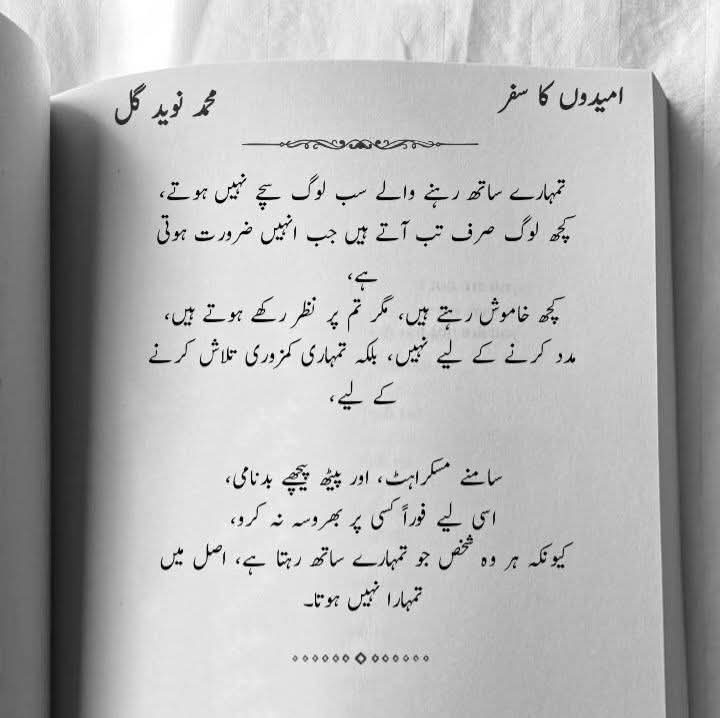 امیدوں کا سفر
محمد نوید گل
تمہارے ساتھ رہنے والے سب لوگ سچے نہیں ہوتے،
کچھ لوگ صرف تب آتے ہیں جب انہیں ضرورت ہوتی
ہے،
کچھ خاموش رہتے ہیں، مگر تم پر نظر رکھے ہوتے ہیں،
مدد کرنے کے لیے نہیں، بلکہ تمہاری کمزوری تلاش کرنے
کے لیے،
سامنے مسکراہٹ، اور پیٹھ پیچھے بدنامی،
اسی لیے فوراً کسی پر بھروسہ نہ کرو،
کیونکہ ہر وہ شخص جو تمہارے ساتھ رہتا ہے، اصل میں
تمہارا نہیں ہوتا۔